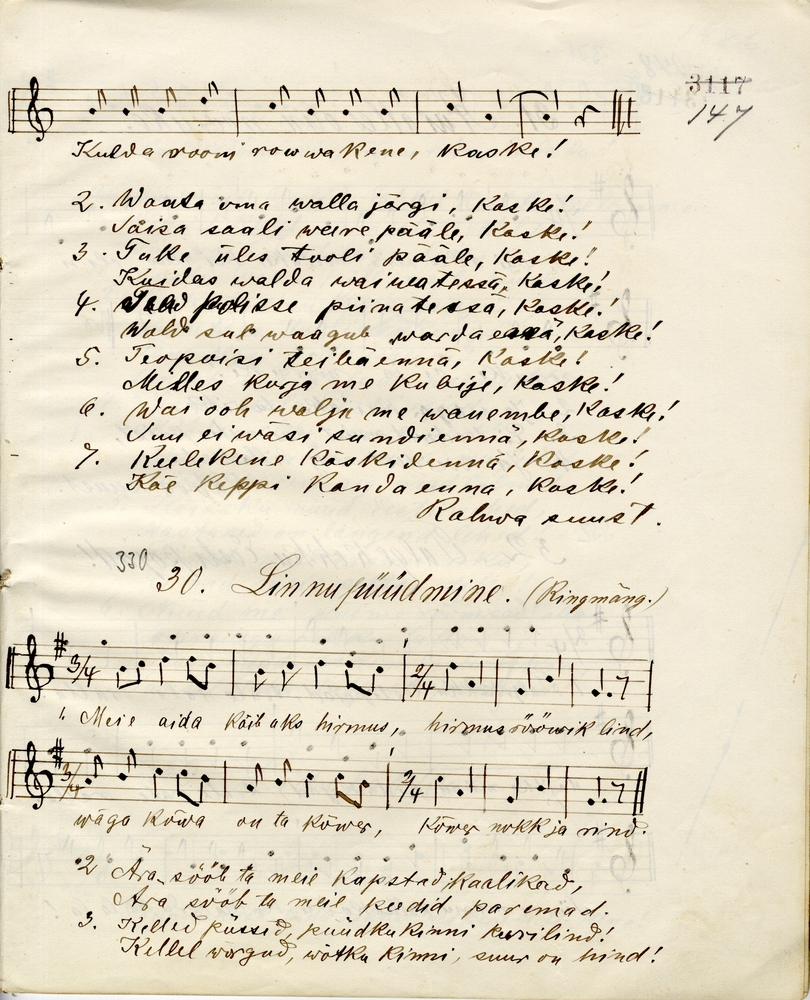 3117
147
Kulda rooni rowwakene, Kaske!
2. Waata oma walla järgi, Kaske!
Saisa saali weere pääle, Kaske!
3. Tuke üles tooli pääle, Kaske!
Kuidas walda waiwatessä, Kaske!
4. polisse piinatessä, Kaske!
Wald sul waagub, Kaske!
5. Teopoisi teibäennä, Kaske!
Milles kurja me Kubije, Kaske!
6. Wai ooh walju me wanembe, Kaske!
Suu ei wäsi sundiennä, Kaske!
7. Keelekene Käskidennä, Kaske!
Käe Keppi Kandaenna, Kaske!
Rahwa suust.
330
30. Linnupüüdmine. (Ringmäng.)
3/4 2/4
Meie aida käib üks hirmus, hirmus röövik lind,
3/4 2/4
wäga kõwa on ta kõwer, kõwer nokk ja rind.
2 Ära sööb ta meie kapstad, kaalikad,
Ära sööb ta meie peedid paremad.
3. Kelled püssid, püüdku kinni kurilind!
Kellel worgud, wõtku kinni, suur on hind!